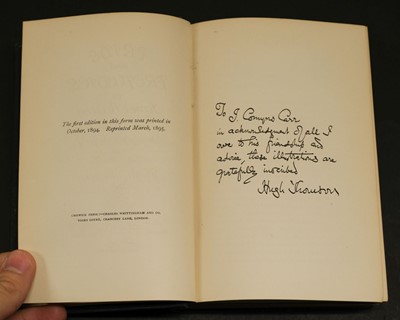 The first edition in this form was printed in
October, 1894. Reprinted March, 1895.
CHISWICK PRESS:—CHARLES WHITTINGHAM AND CO.
TOOKS COURT, CHANCERY LANE, LONDON.
To J. Comyns Carr
in acknowledgment of all I
owe to his friendship and
advice, these illustrations are
gratefully inscribed
Hugh Thomson